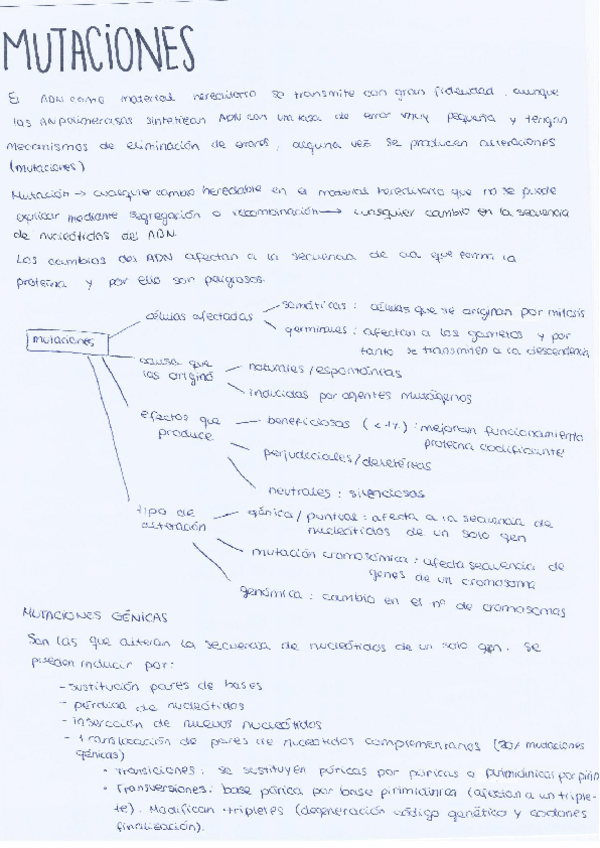 MUTACIONES
El ADN como material hereditario se transmite con gran fidelidad, aunque
las ANpolimerasas sintetizan ADN con una tasa de error muy pequeña y tengan
mecanismos de eliminación de errores, alguna vez se producen alteraciones
(mutaciones)
Mutación → cualquier cambio heredable en el material hereditario que no se puede
explicar mediante segregación o recombinación → cualquier cambio en la secuencia
de nucleótidos del ADN.
Los cambios del ADN afectan a la secuencia de aa que forma la
proteína y por ello son peligrosos.
mutaciones
células afectadas
somáticas: células que se originan por mitosis
germinales: afectan a los gametos y por
tanto se transmiten a la descendencia
causa que
las originó
naturales/espontáneas
inducidas por agentes mutágenos
efectos que
produce
beneficiosas (<1%): mejoran funcionamiento
proteína codificante
perjudiciales/deletéreas
neutrales: silenciosas
tipo de
alteración
génica/puntual: afecta a la secuencia de
nucleótidos de un solo gen
mutación cromosómica: afecta secuencia de
genes de un cromosoma
genómica: cambio en el nº de cromosomas
MUTACIONES GÉNICAS
Son las que alteran la secuencia de nucleótidos de un solo gen. Se
pueden inducir por:
- sustitución pares de bases
- pérdida de nucleótidos
- inserción de nuevos nucleótidos
- translocación de pares de nucleótidos complementarios (20% mutaciones
génicas)
• Transiciones: se sustituyen púricas por púricas o pirimidínicas por pirim
• Transversiones: base púrica por base pirimidínica (afectan a un triple-
te). Modifican tripletes (degeneración código genético y codones
finalización).